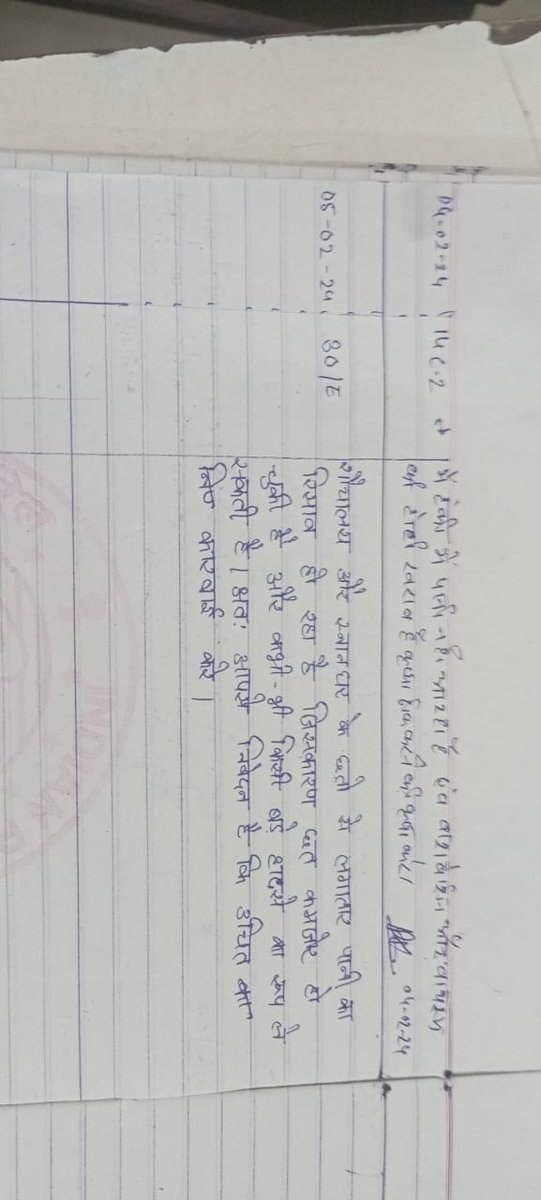 04-02-24 14 C-2 में टंकी में पानी नहीं आ रहा है एंव वाशवेशिन और वाथरुम
की टोटी खराब है कृपया ठीक करने की कृपा करे। 04-02-24
05-02-24 80/E शौचालय और स्नानघर के छतो से लगातार पानी का
रिसाव हो रहा है जिसकारण छत कमजोर हो
चुकी है और कभी-भी किसी बड़े हादसे का रूप ले
सकती है। अतः आपसे निवेदन है कि उचित का
लिए कारवाई करे।
INDIAN